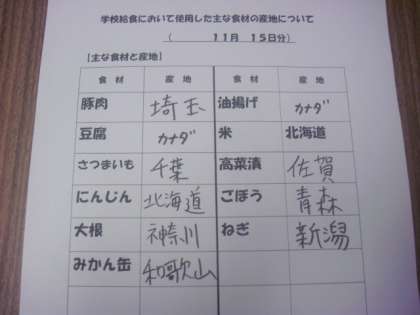 学校給食において使用した主な食材の産地について
(　11月　15日分)
【主な食材と産地】
食材　産地　食材　産地
豚肉　埼玉　油揚げ　カナダ
豆腐　カナダ　米　北海道
さつまいも　千葉　高菜漬　佐賀
にんじん　北海道　ごぼう　青森
大根　神奈川　ねぎ　新潟
みかん缶　和歌山